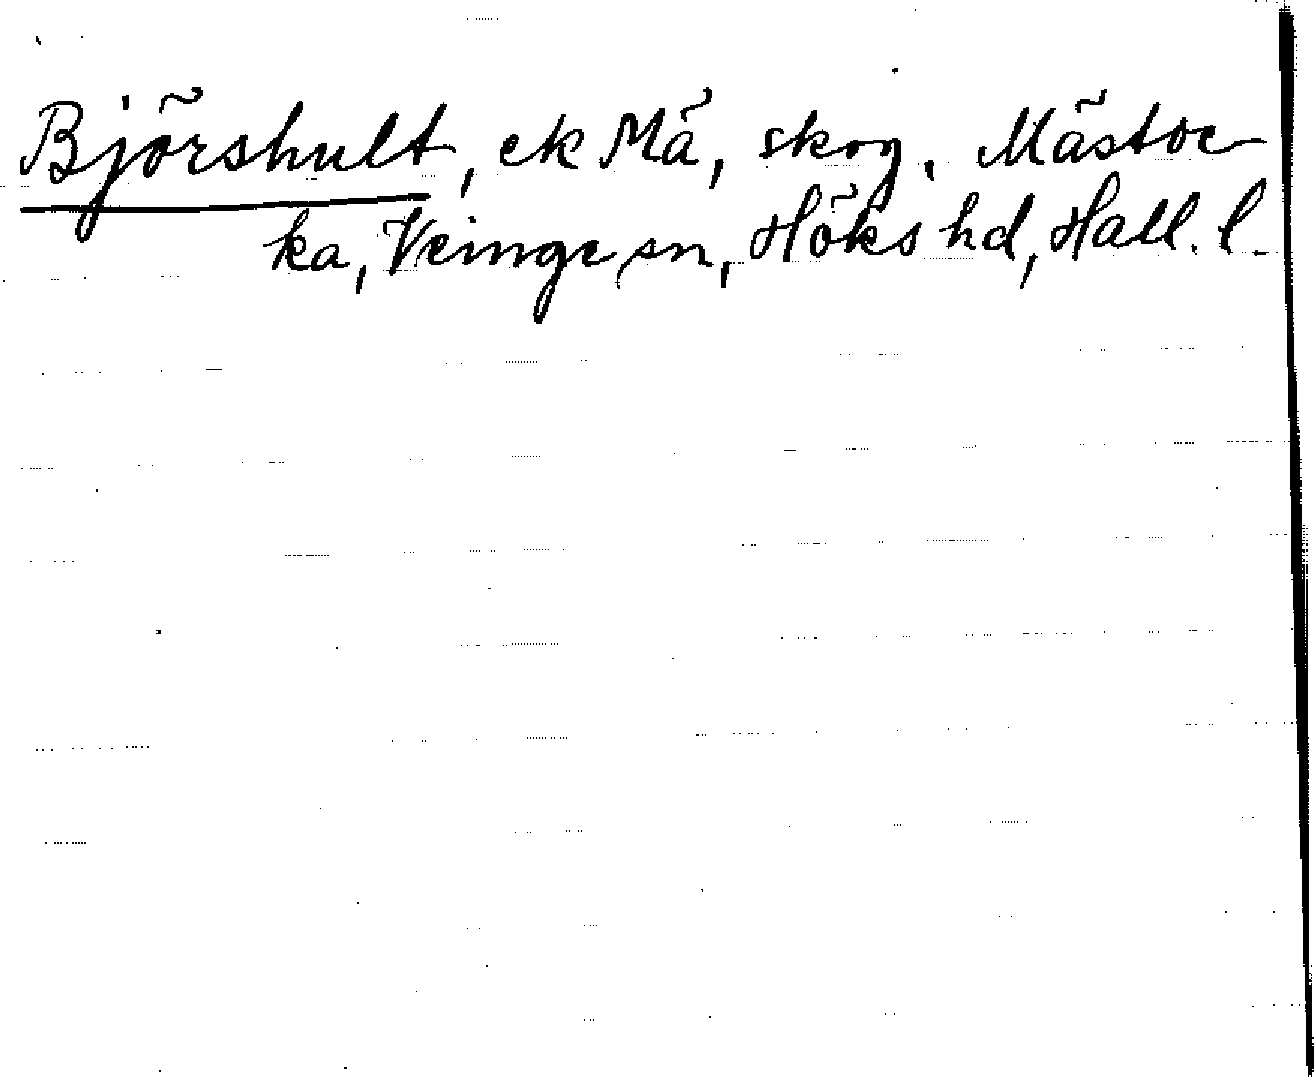 Björshult, ek Mä, skog. Mästoc-
ka, Veinge sn, Höks hd, Hall. l.